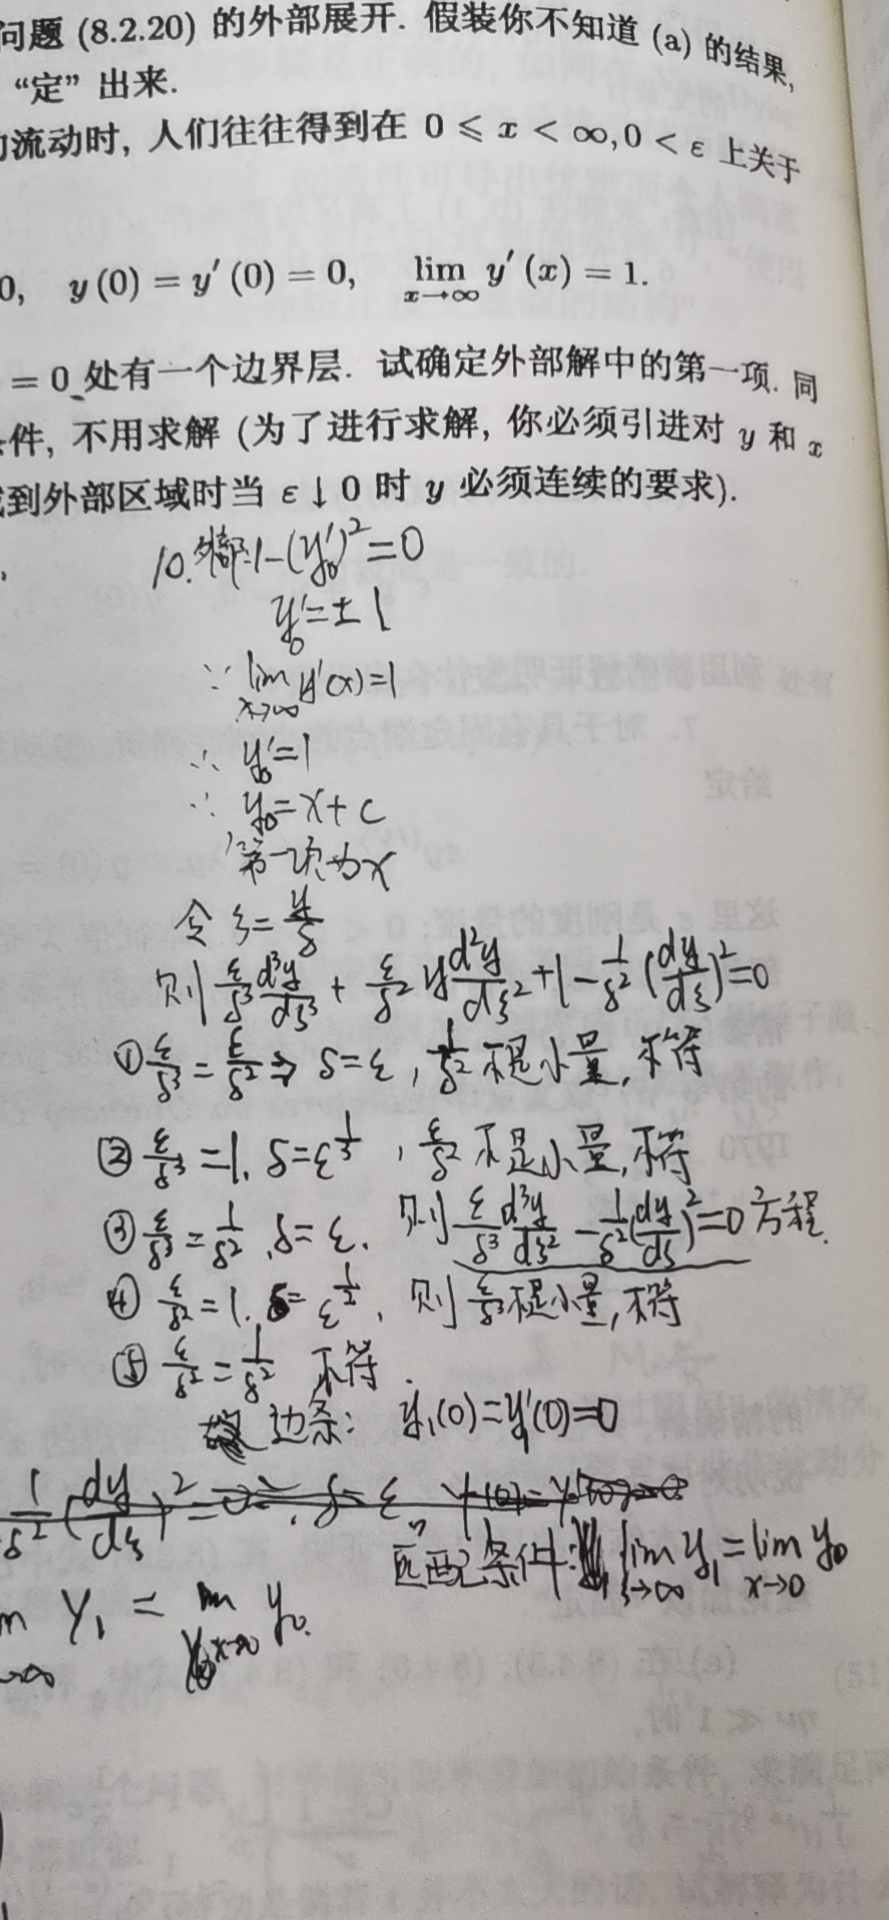 问题 (8.2.20) 的外部展开. 假装你不知道 (a) 的结果,
“定” 出来.
流动时, 人们往往得到在 0 ⩽ x < ∞, 0 < ε 上关于
0, y (0) = y′ (0) = 0, lim x→∞ y′ (x) = 1.
= 0 处有一个边界层. 试确定外部解中的第一项. 同
件, 不用求解 (为了进行求解, 你必须引进对 y 和 x
到外部区域时当 ε ↓ 0 时 y 必须连续的要求).
10. 外部: 1-(y₀′)²=0
y₀′=±1
∵ lim x→∞ y′(x)=1
∴ y₀′=1
∴ y₀=x+c
第一项为x
令 ξ=y/δ
则 ε/δ³ d³y/dξ³ + ε/δ² y d²y/dξ² +1- 1/δ² (dy/dξ)²=0
① ε/δ³ = ε/δ² ⇒ δ=ε, 1/δ² 不是小量, 不符
② ε/δ³ =1. δ=ε^(1/3), ε/δ² 不是小量, 不符
③ ε/δ³ = 1/δ², δ=ε. 则 ε/δ³ d³y/dξ³ - 1/δ² (dy/dξ)²=0 方程.
④ ε/δ² =1. δ=ε^(1/2), 则 ε/δ³ 不是小量, 不符
⑤ ε/δ² = 1/δ² 不符.
边条: y₁(0)=y₁′(0)=0
1/δ² (dy/dξ)² =0. δ=ε
匹配条件: lim ξ→∞ y₁ = lim x→0 y₀
Y₁ = lim x→0 y₀.